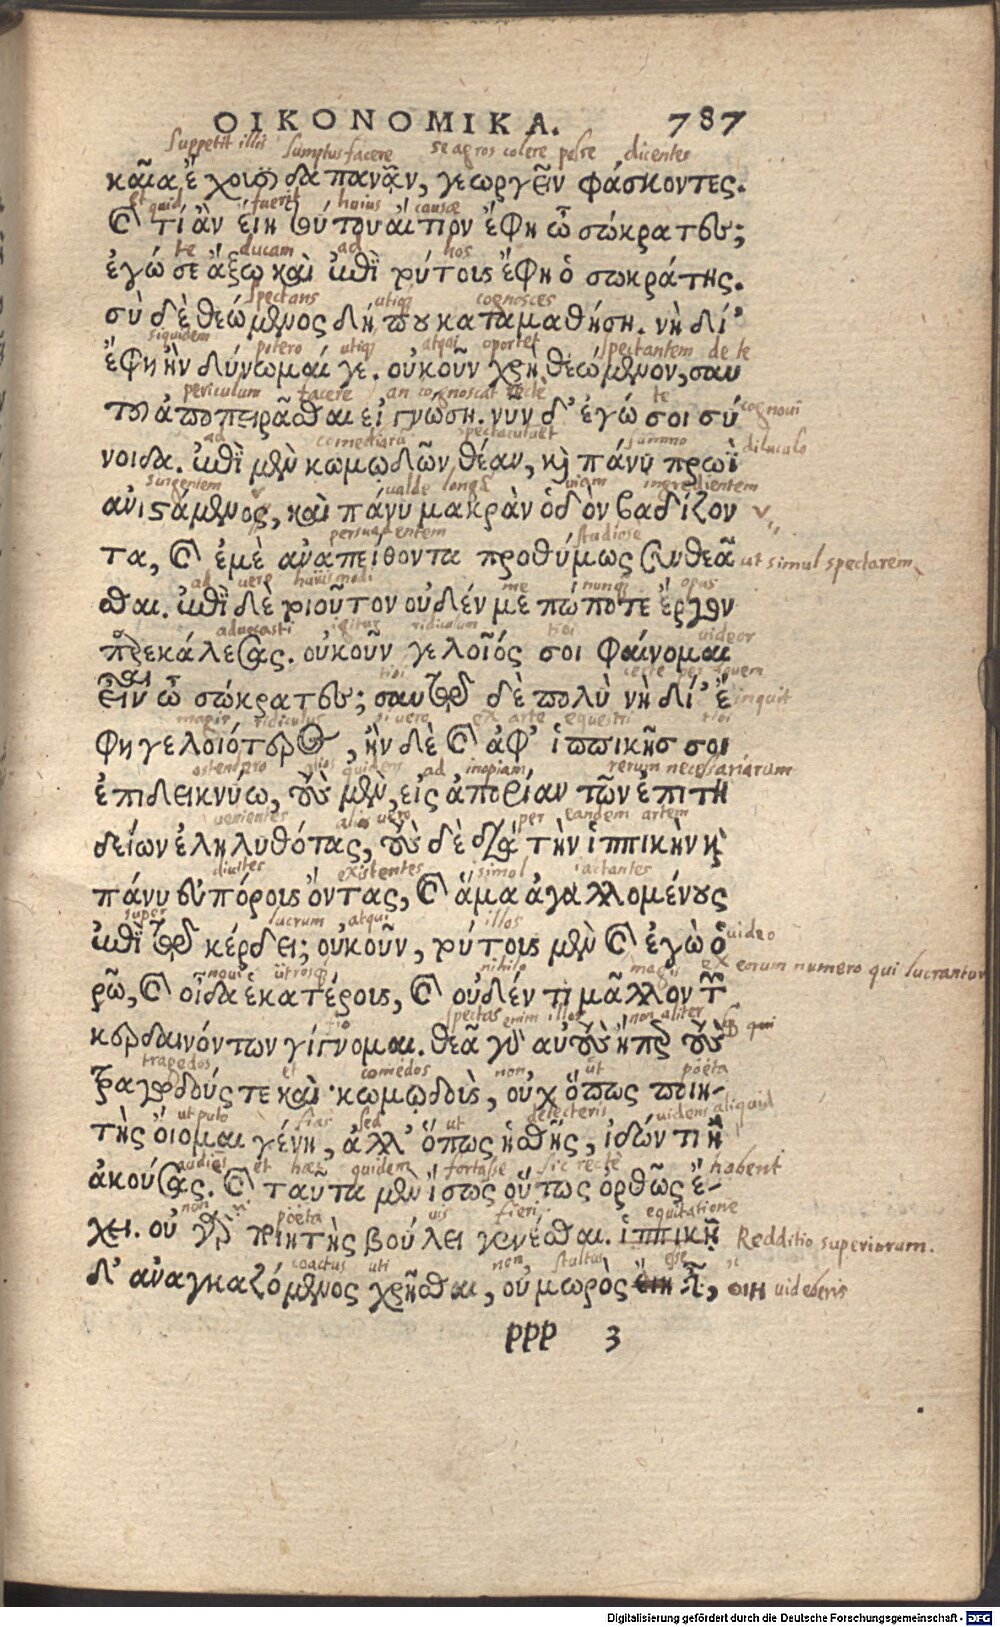 ΟΙΚΟΝΟΜΙΚΑ. 787
Suppetit illis sumptus facere se agros colere posse dicentes
καῖα ἔχουσι δαπανᾶν, γεωργεῖν φάσκοντες.
et quid fuerit huius causæ
καὶ τί ἂν εἴη τούτου αἴτιον ἔφη ὦ σώκρατες;
te ducam ad hos
ἐγώ σε ἄξω καὶ ἐπὶ τούτοις ἔφη ὁ σωκράτης.
spectans utiq; cognosces
σὺ δὲ θεώμενος δήπου καταμαθήσῃ. νὴ δί'
siquidem potero utiq; atqui oportet spectantem de te
ἔφη ἢν δύνωμαί γε. οὐκοῦν χρὴ θεώμενον, σαυ
periculum facere an cognoscat recte te cognoui
τοῦ ἀποπειρᾶσθαι εἰ γνώσῃ. νῦν δ' ἐγώ σοι σύ
ad comediarū spectaculū summo diluculo
νοιδα. ἐπὶ μὲν κωμῳδῶν θέαν, καὶ πάνυ πρωῒ
surgentem ualde longā uiam ingredientem
ανιστάμενος, καὶ πάνυ μακρὰν ὁδὸν βαδίζον
persuadentem studiose
τα, καὶ ἐμὲ αναπείθοντα προθύμως συνθεᾶ ut simul spectarem
ad uero huiusmodi me nunq; opus
σθαι. ἐπὶ δὲ τοιοῦτον οὐδέν με πώποτε ἔργον
aduocasti igitur ridiculum tibi uideor
παρεκάλεσας. οὐκοῦν γελοῖός σοι φαίνομαι
εἶναι
εἶν ὦ σώκρατες; σαυτῷ δὲ πολὺ νὴ δί' ἔ inquit
magis ridiculus si uero ex arte equestri tibi
φη γελοιότερος, ἢν δὲ καὶ ἀφ' ἱππικῆς σοι
ostendero alios quidens ad inopiam rerum necessariarum
ἐπιδεικνύω, τοὺς μὲν, εἰς ἀπορίαν τῶν ἐπιτη
uenientes alios uero per eandem artem
δείων ἐληλυθότας, τοὺς δὲ διὰ τὴν ἱππικὴν καὶ
diuites existentes simul iactantes
πάνυ εὐπόρους ὄντας, καὶ ἅμα ἀγαλλομένους
super lucrum atqui illos
ἐπὶ τῷ κέρδει; οὐκοῦν, τούτους μὲν καὶ ἐγὼ ὁ uideo
noui utrosq; nihilo magis ex eorum numero qui lucrantur
ρῶ, καὶ οἶδα ἑκατέρους, καὶ οὐδέν τι μᾶλλον τῶν
fio spectas enim illos non aliter qui
κερδαινόντων γίγνομαι. θεᾷ γὰρ αὐτοὺς ᾗπερ τοὺς
tragedos et comędos non, ut poëta
τραγῳδούς τε καὶ κωμῳδοὺς, οὐχ ὅπως ποιη-
ut puto fias sed ut delecteris uidens aliquid
τὴς οἴομαι γένῃ, ἀλλ' ὅπως ἡσθῇς, ἰδών τι ἢ
audiēs et hæc quidem fortasse sic recte habent
ἀκούσας. καὶ ταῦτα μὲν ἴσως οὕτως ὀρθῶς ἔ-
non poëta uis fieri equitatione
χει. οὐ γὰρ ποιητὴς βούλει γενέσθαι. ἱππικῇ Redditio superiorum.
coactus uti non, stultus esse
δ' αναγκαζόμενος χρῆσθαι, οὐ μωρὸς εἶναι, οιη uideberis
ppp 3
Digitalisierung gefördert durch die Deutsche Forschungsgemeinschaft - DFG